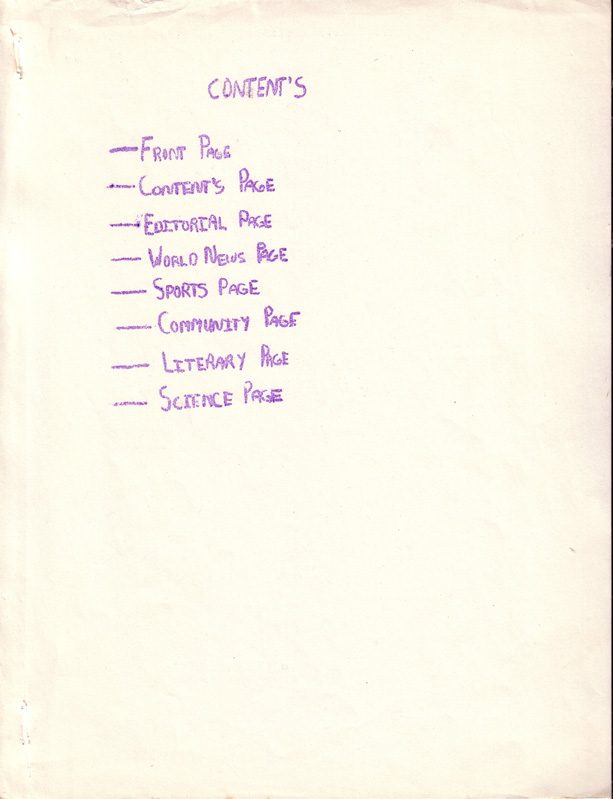 CONTENT'S
— FRONT PAGE
— CONTENT'S PAGE
— EDITORIAL PAGE
— WORLD NEWS PAGE
— SPORTS PAGE
— COMMUNITY PAGE
— LITERARY PAGE
— SCIENCE PAGE